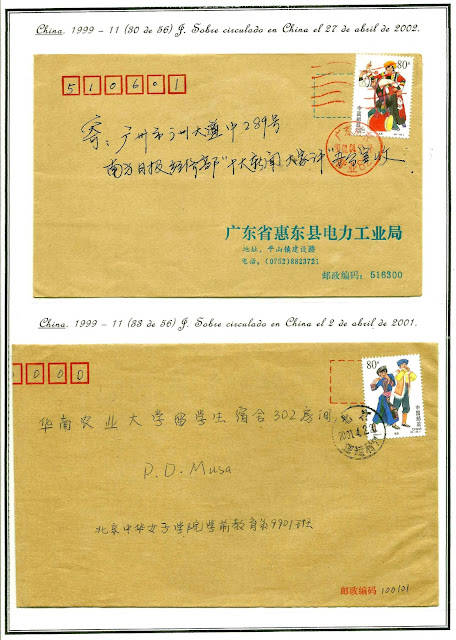 China. 1999 - 11 (30 de 56) J. Sobre circulado en China el 27 de abril de 2002.
510601
80分
寄：广州市广州大道中289号
南方日报经济部"十大新闻大家评"
广东省惠东县电力工业局
地址：平山镇建设路
电话：(0752)8823721
邮政编码：516300
China. 1999 - 11 (33 de 56) J. Sobre circulado en China el 2 de abril de 2001.
0000
80分
华南农业大学留学生宿舍302房间
P.D. Musa
2001.4.2
北京中华女子学院学前教育系9901班
邮政编码 100101